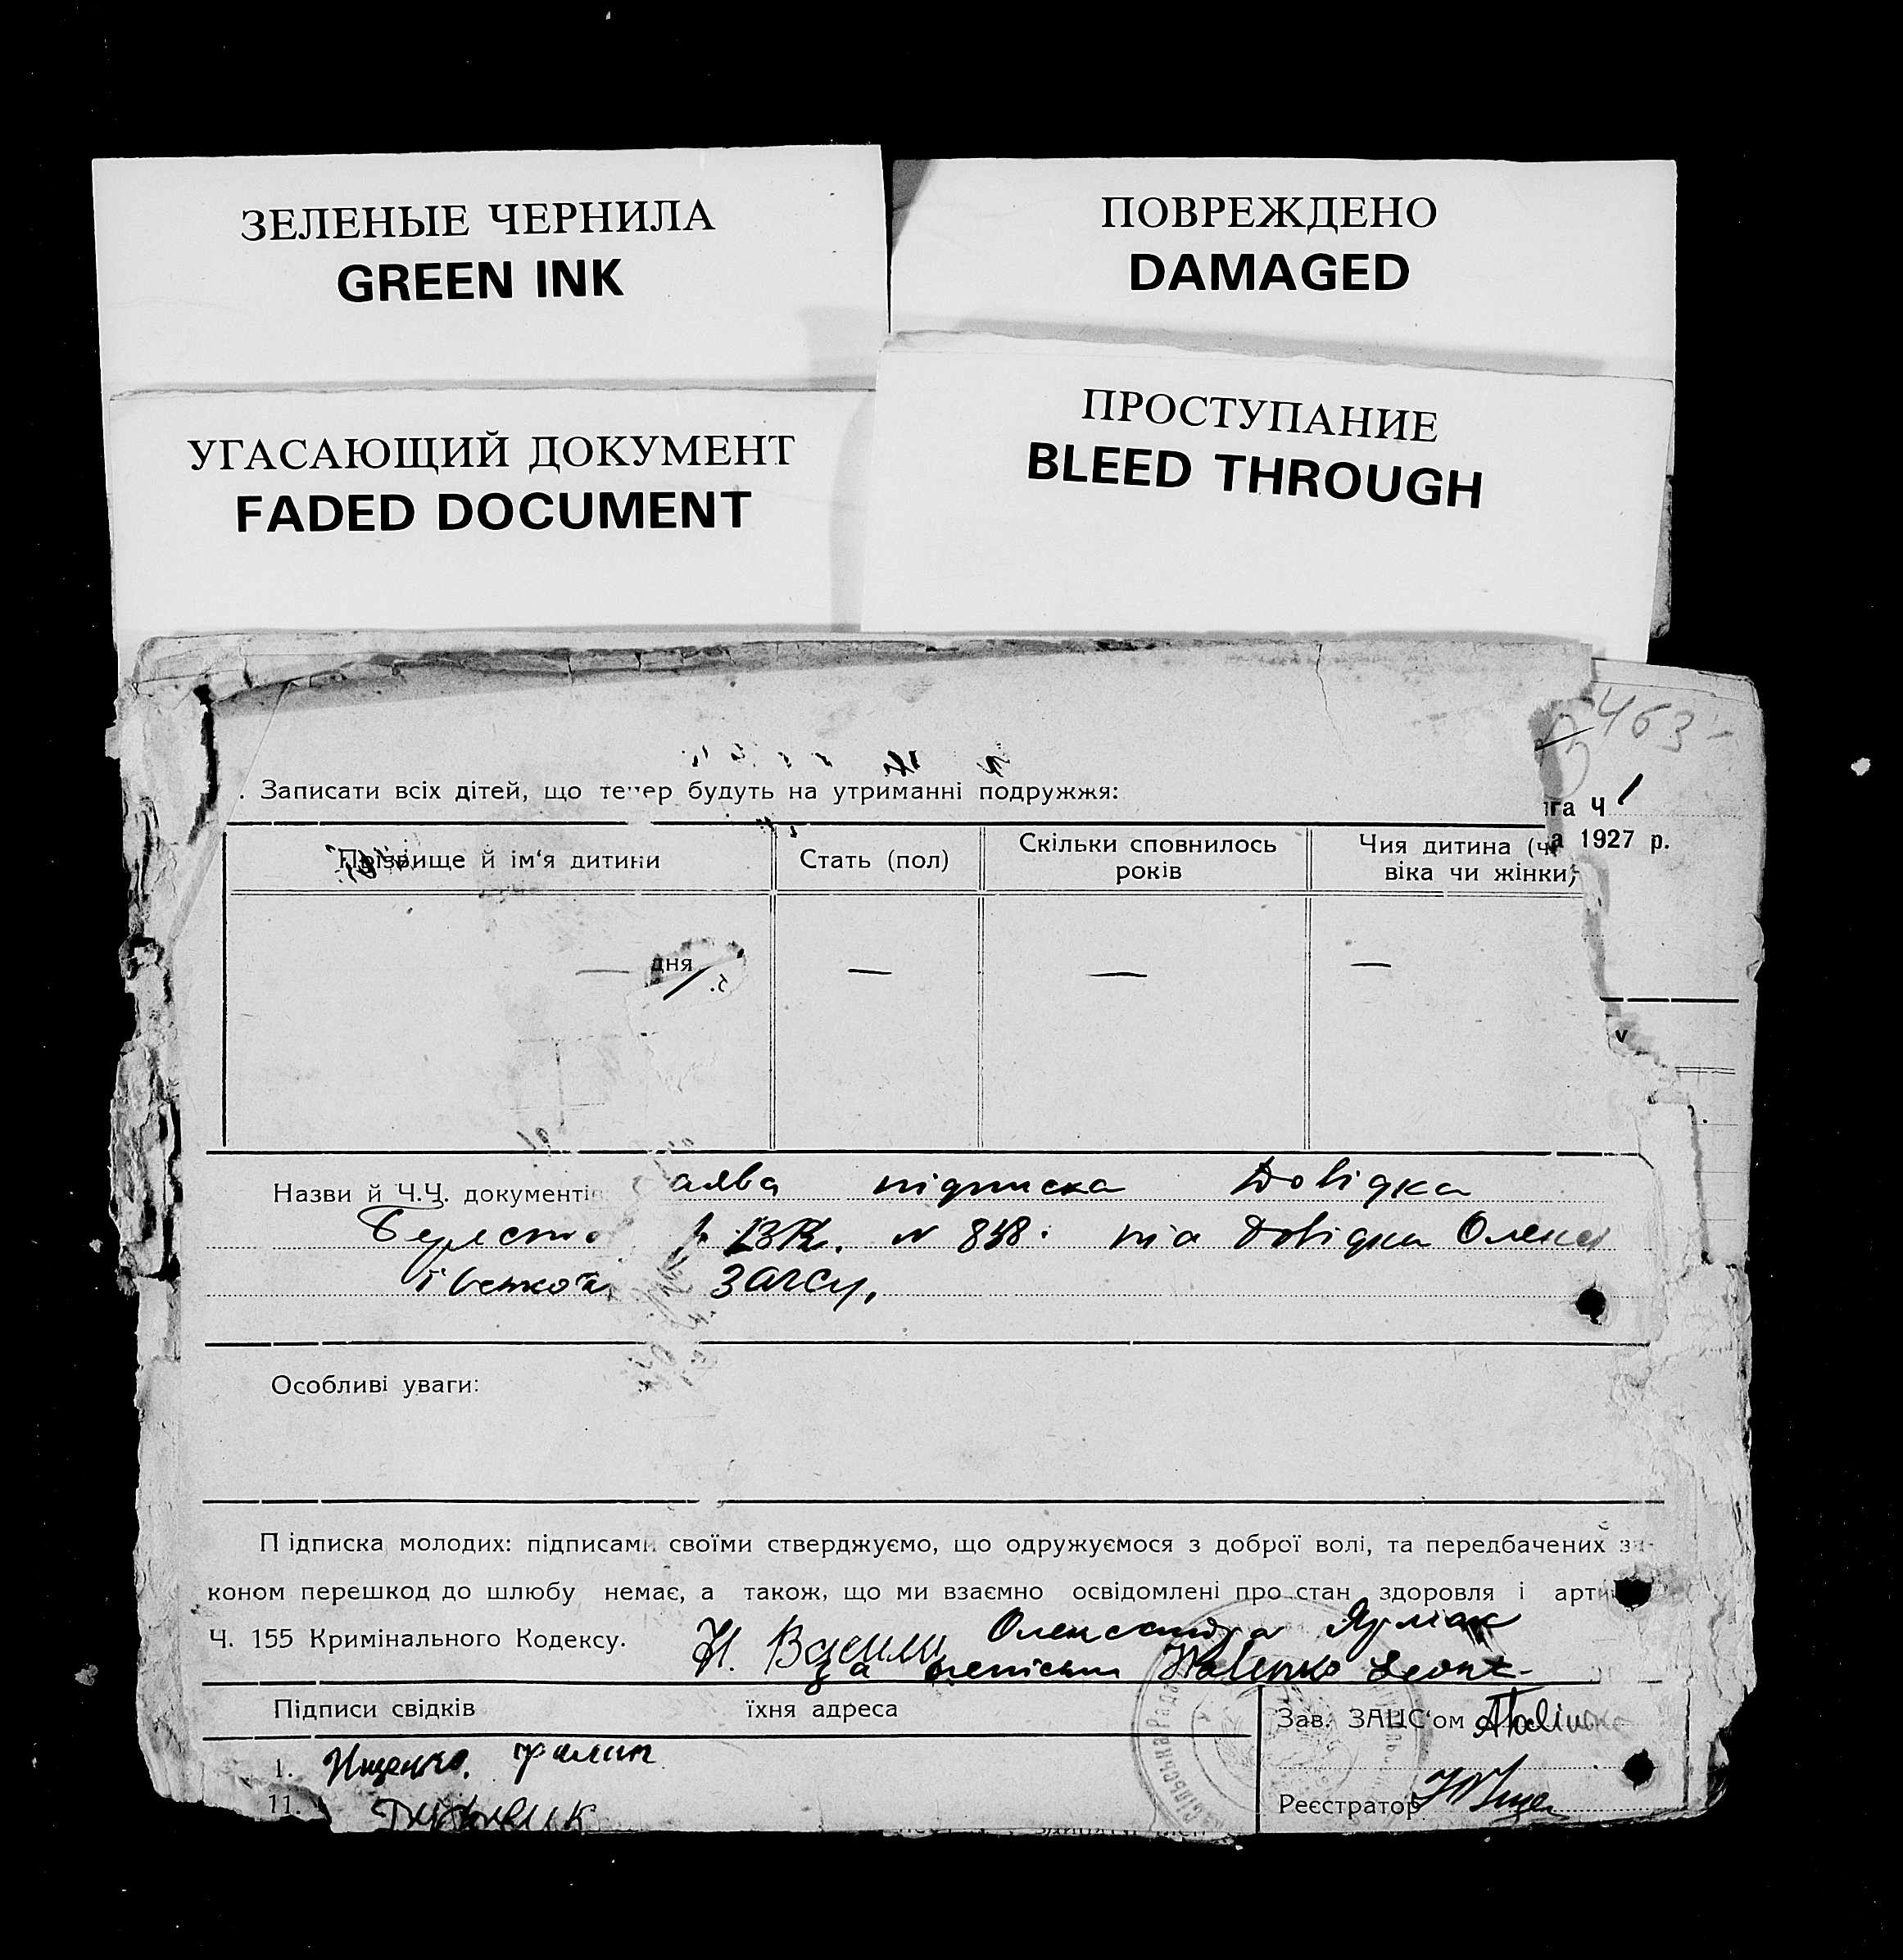 ЗЕЛЕНЫЕ ЧЕРНИЛА
GREEN INK
ПОВРЕЖДЕНО
DAMAGED
УГАСАЮЩИЙ ДОКУМЕНТ
FADED DOCUMENT
ПРОСТУПАНИЕ
BLEED THROUGH
463
. Записати всіх дітей, що тепер будуть на утриманні подружжя:
га Ч 1
а 1927 р.
Прізвище й ім‘я дитини
Стать (пол)
Скільки сповнилось років
Чия дитина (чо
віка чи жінки)
— дня
—
—
—
Назви й Ч.Ч. документів аява підписка Довідка
N 838. та Довідка Олекс
ЗАГСу.
Особливі уваги:
Підписка молодих: підписами своїми стверджуємо, що одружуємося з доброї волі, та передбачених за-
коном перешкод до шлюбу немає, а також, що ми взаємно освідомлені про стан здоровля і арти
Ч. 155 Кримінального Кодексу.
Олександра Ярмак
за
Підписи свідків
їхня адреса
Зав. ЗАЦС‘ом
1. Ищенко.
11.
Реєстратор
Сільська Рада